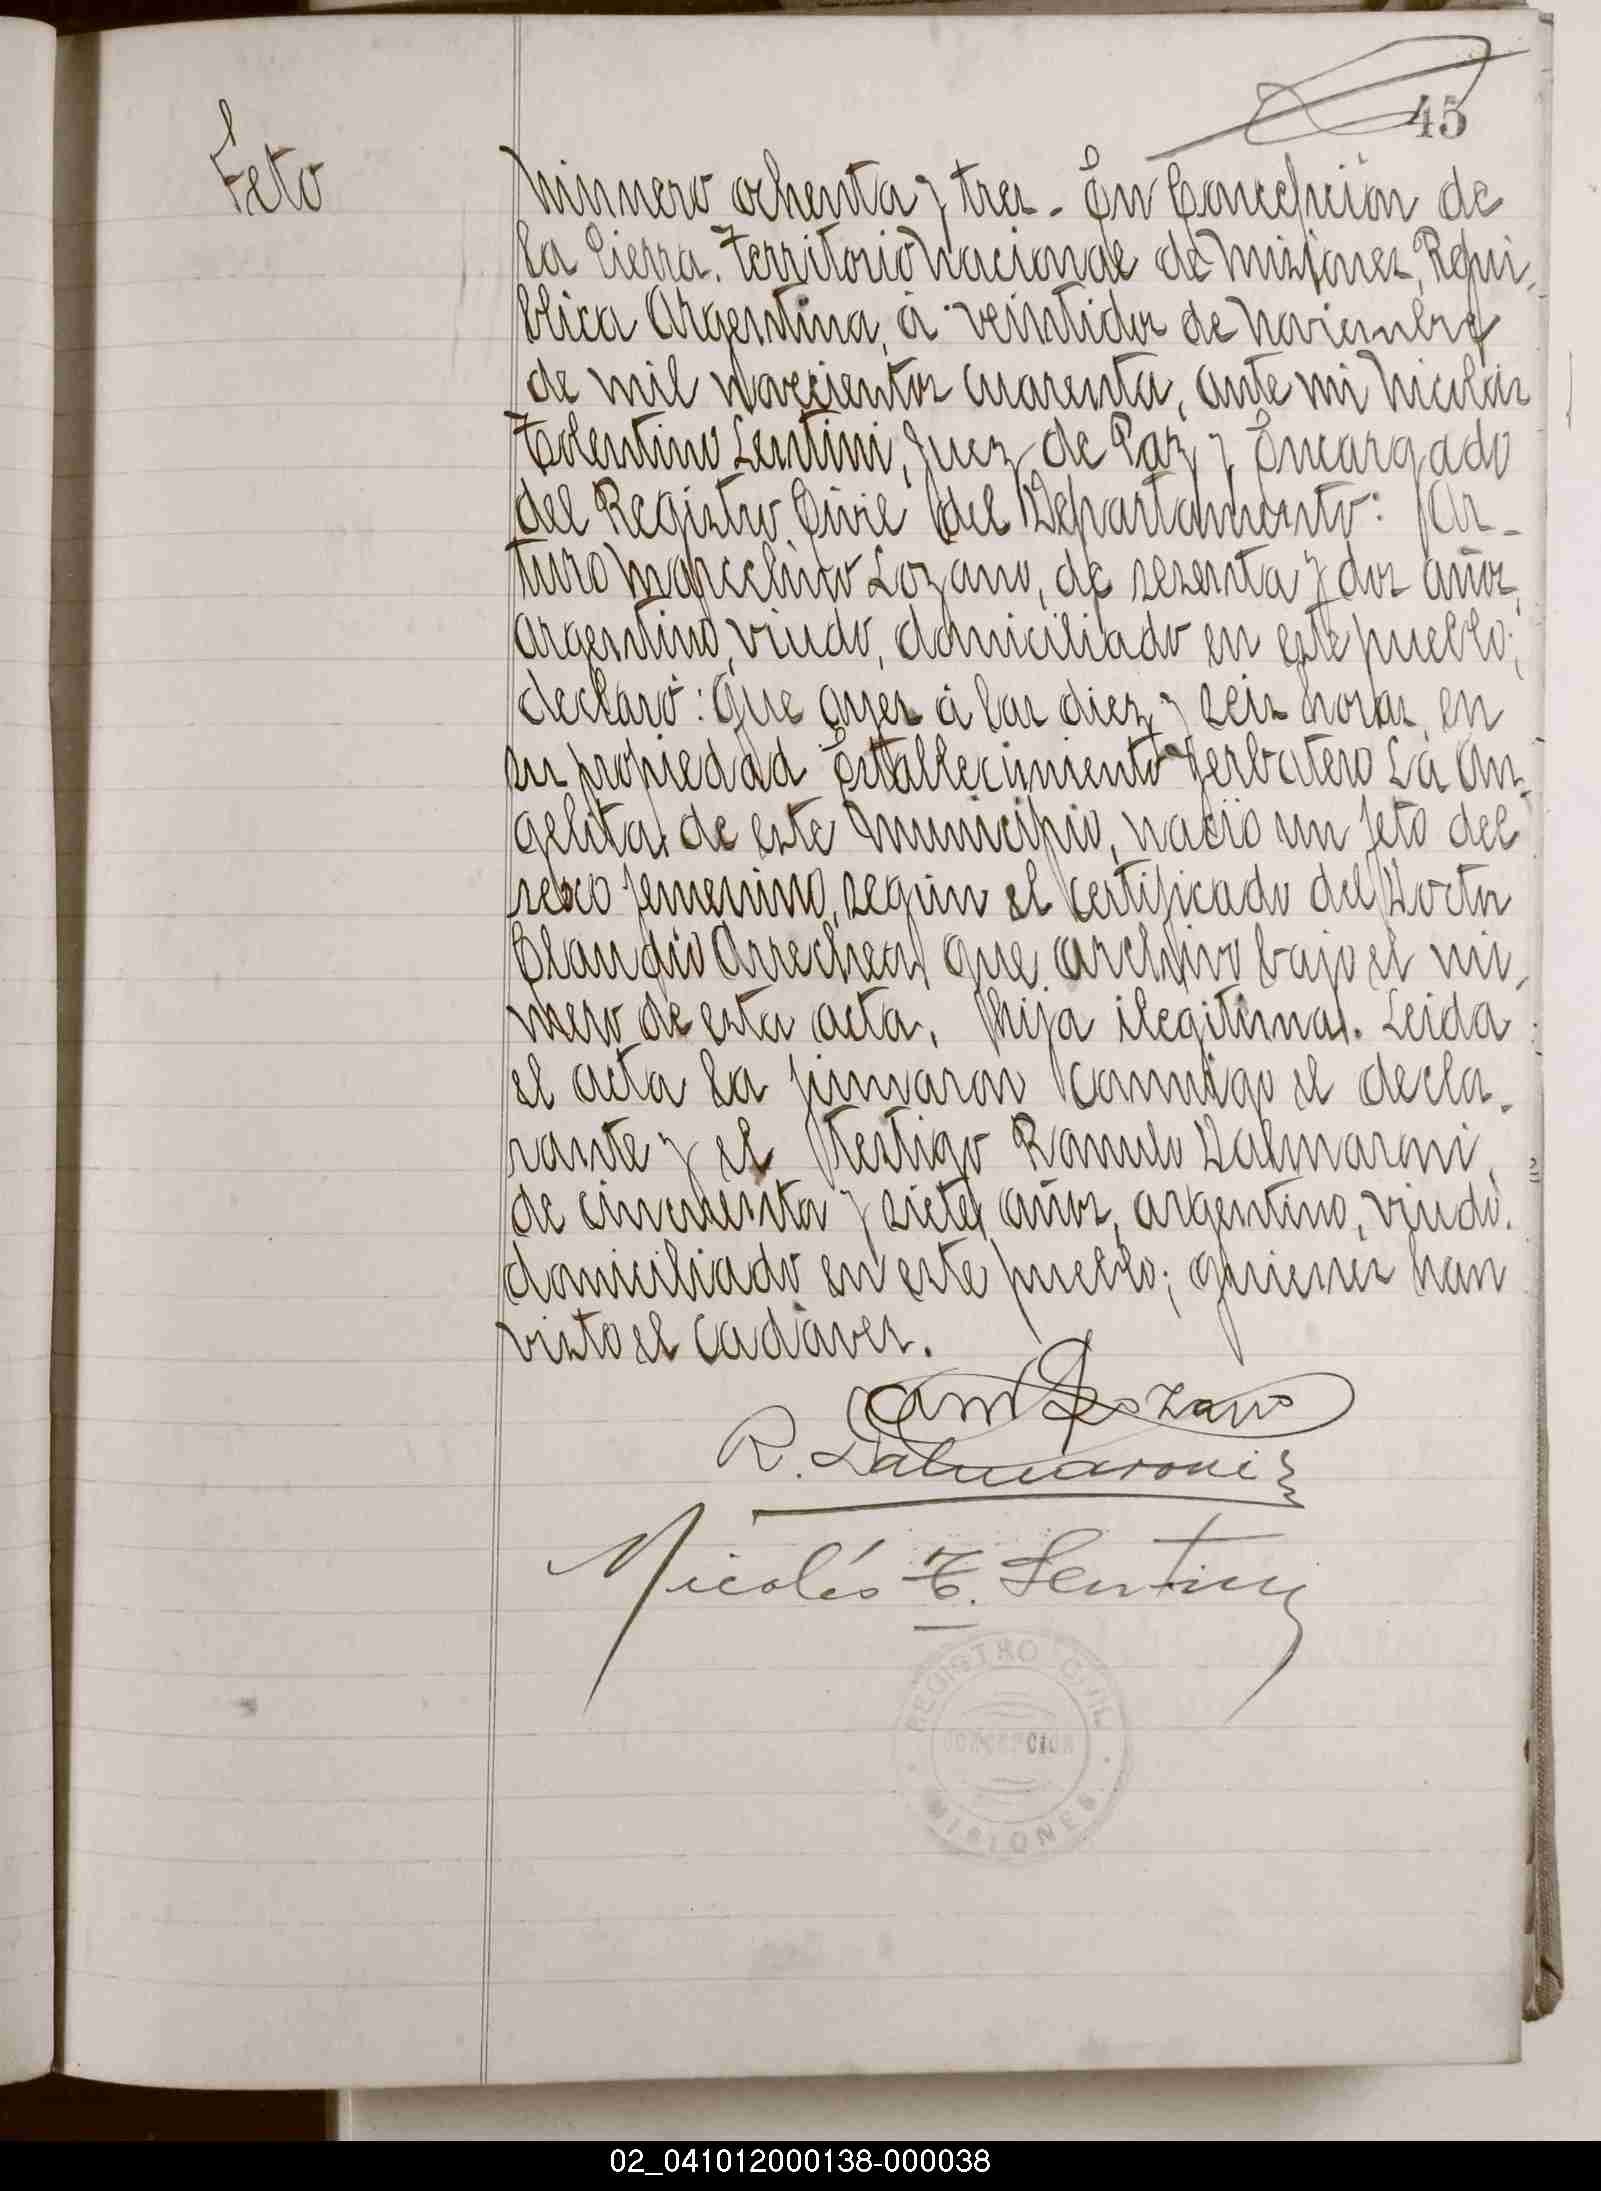 45
Feto
Número ochenta y tres - En Concepción de
la Sierra. Territorio Nacional de Misiones, Repú-
blica Argentina, á veintidos de Noviembre
de mil novecientos cuarenta, ante mi Nicolás
Tolentino Lentini, Juez de Paz y Encargado
del Registro Civil del Departamento: Ar-
turo Marcelino Lozano, de sesenta y dos años,
argentino, viudo, domiciliado en este pueblo;
declaró: Que ayer á las diez y seis horas, en
su propiedad Establecimiento Yerbatero La An-
gelita, de este Municipio, nació un feto del
sexo femenino, según el certificado del Doctor
Claudio Arrechea, que archivo bajo el nú-
mero de esta acta. Hija ilegitima. Leida
el acta la firmaron conmigo el decla-
rante y el testigo Romulo Dalmaroni,
de cincuenta y siete años, argentino, viudo.
domiciliado en este pueblo; quienes han
visto el cadáver.
Lozano
R. Dalmaroni
Nicolás T. Lentini
REGISTRO CIVIL
CONCEPCION
MISIONES
02_041012000138-000038